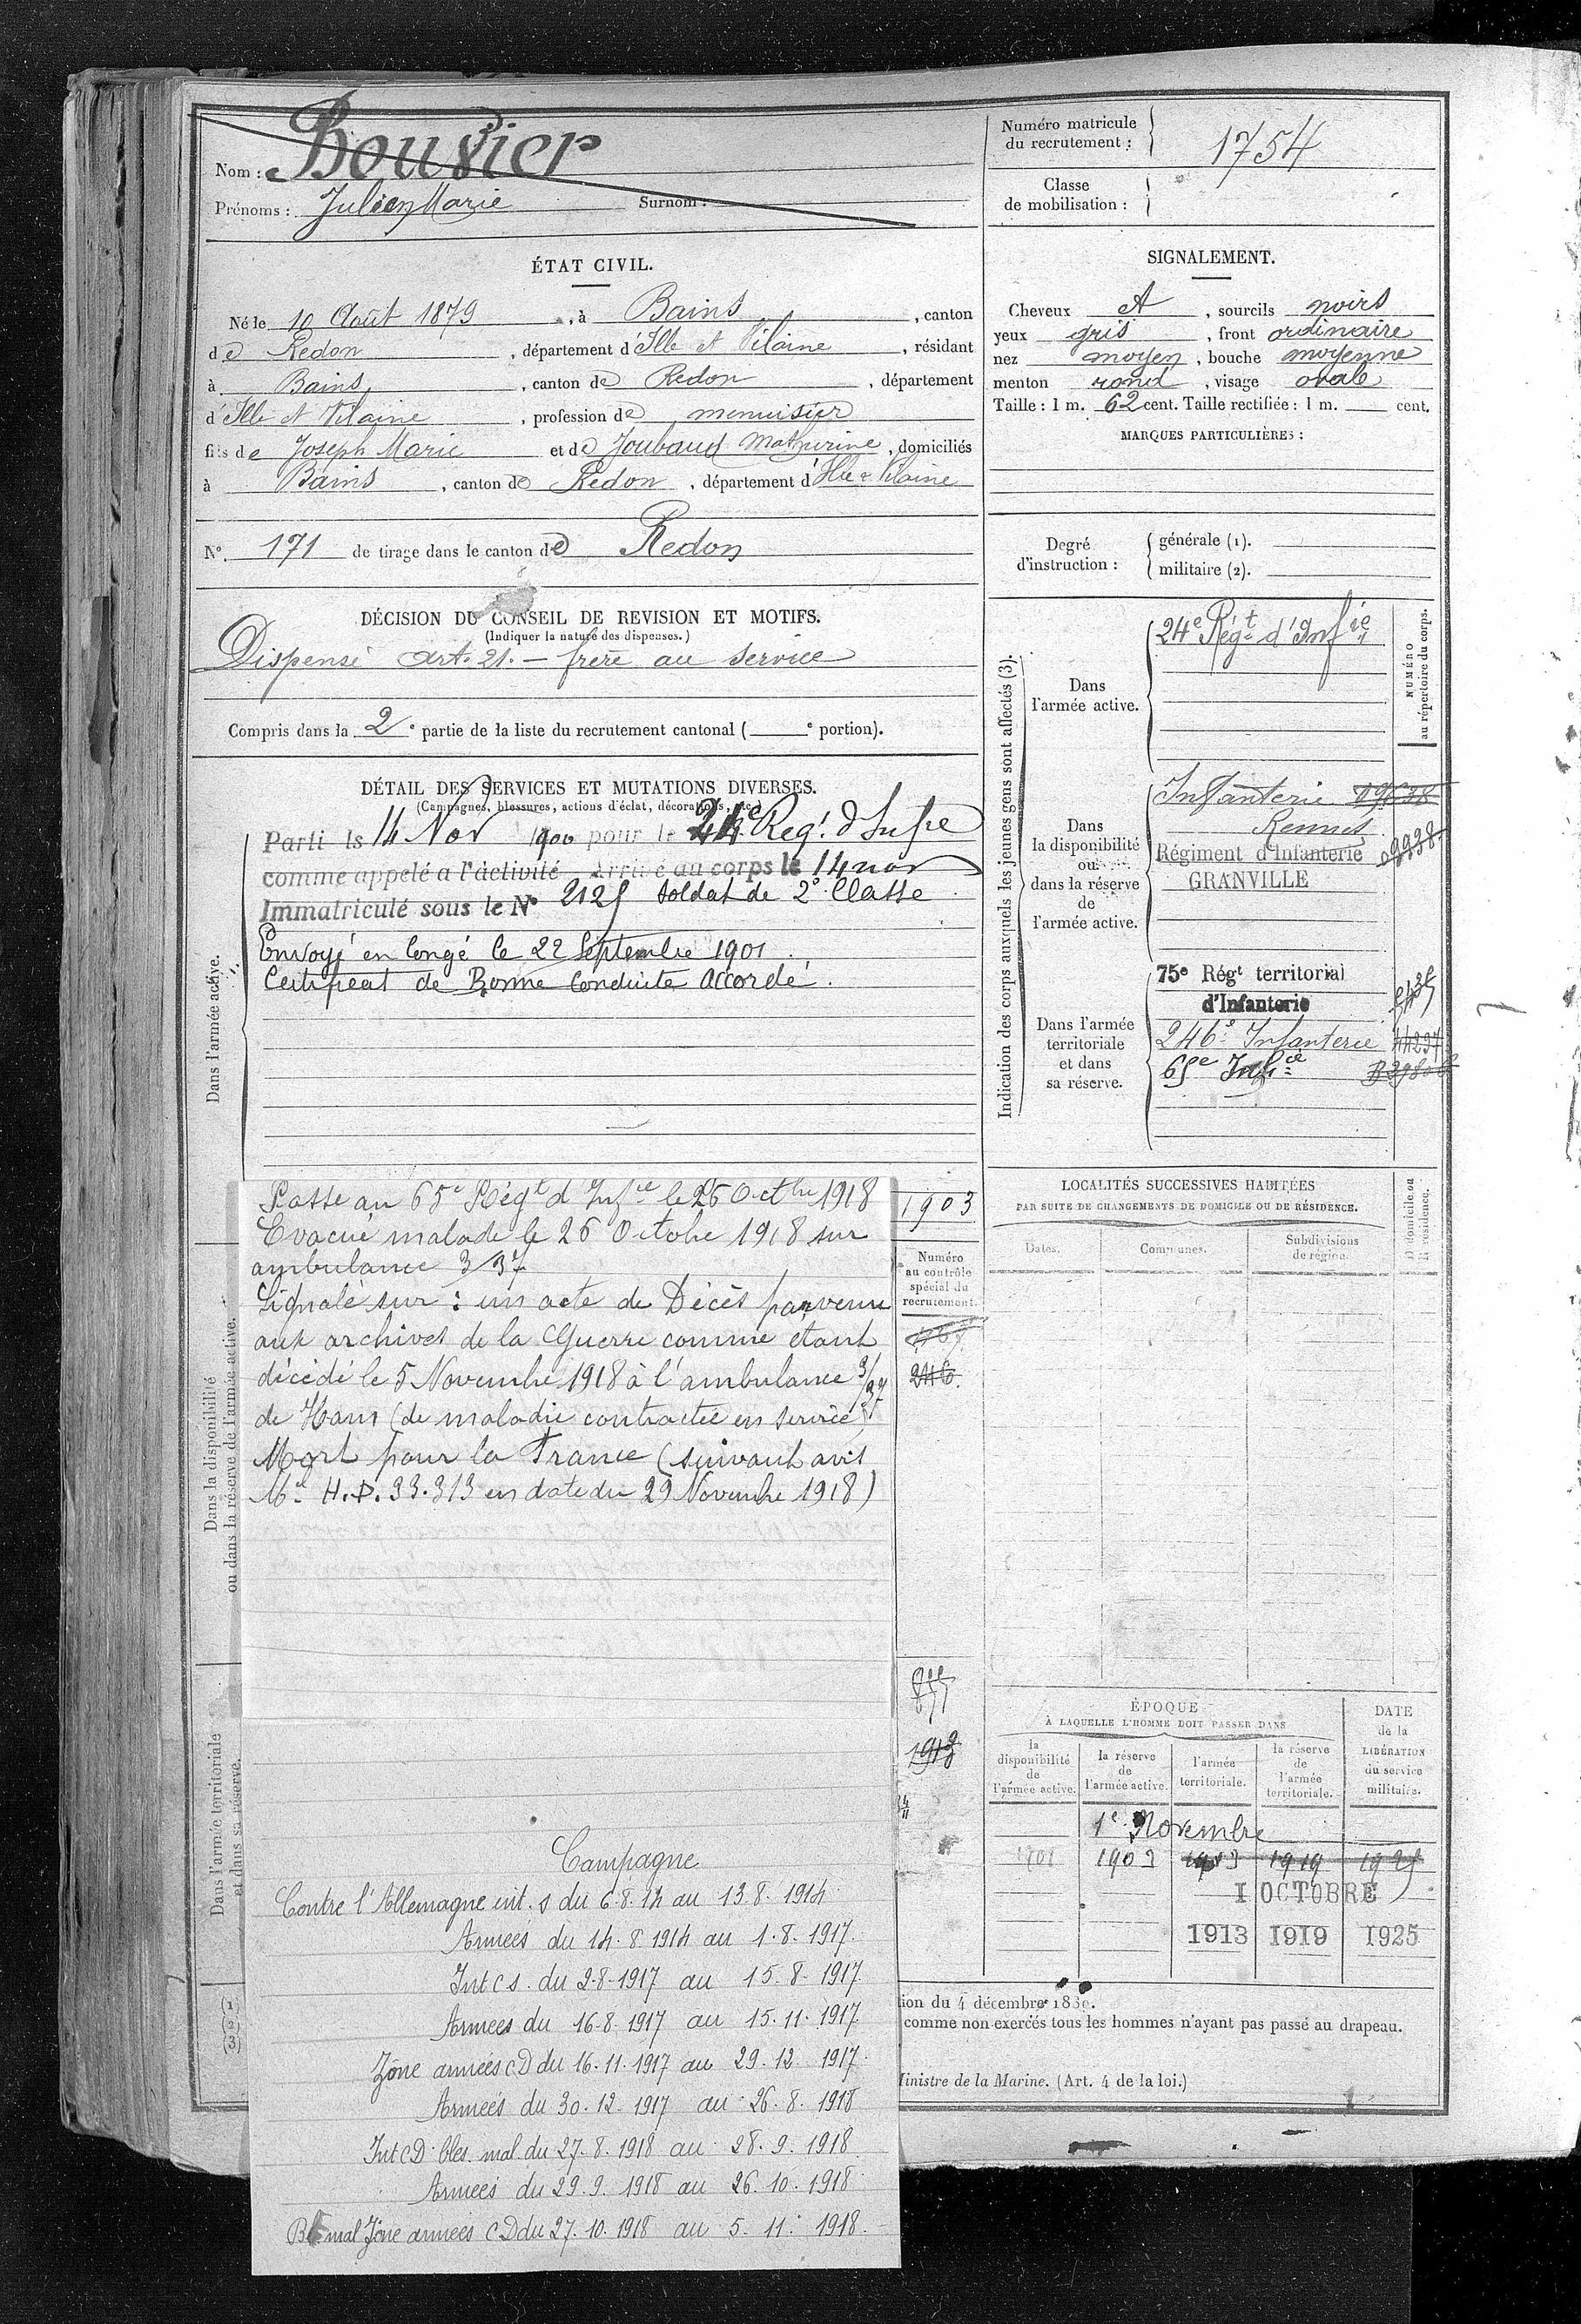 Nom : Bouvier
Prénoms : Julien Marie Surnom :
Numéro matricule
du recrutement : 1754
Classe
de mobilisation :
ÉTAT CIVIL.
Né le 10 Août 1879, à Bains, canton
de Redon, département d'Ille et Vilaine, résidant
à Bains, canton de Redon, département
d'Ille et Vilaine, profession de menuisier
fils de Joseph Marie et de Joubaud Mathurine, domiciliés
à Bains, canton de Redon, département d'Ille & Vilaine
N° 171 de tirage dans le canton de Redon
SIGNALEMENT.
Cheveux et, sourcils noirs
yeux gris, front ordinaire
nez moyen, bouche moyenne
menton rond, visage ovale
Taille : 1 m. 62 cent. Taille rectifiée : 1 m. cent.
MARQUES PARTICULIÈRES :
Degré
d'instruction :
générale (1).
militaire (2).
DÉCISION DU CONSEIL DE REVISION ET MOTIFS.
(Indiquer la nature des dispenses.)
Dispensé Art. 21. — frère au service
Compris dans la 2e partie de la liste du recrutement cantonal ( e portion).
DÉTAIL DES SERVICES ET MUTATIONS DIVERSES.
(Campagnes, blessures, actions d'éclat, décorations, etc.)
Dans l'armée active.
Parti le 14 Nov 1900 pour le 24e Reg.t d'Infie
comme appelé a l'activité Arrivé au corps le 14 nov
Immatriculé sous le N° 2125 soldat de 2e Classe
Envoyé en Congé le 22 Septembre 1901.
Certificat de Bonne Conduite Accordé.
Indication des corps auxquels les jeunes gens sont affectés (3).
NUMÉRO
au répertoire du corps.
Dans
l'armée active.
24e Régt d'Infie
Dans
la disponibilité
ou
dans la réserve
de
l'armée active.
Infanterie
Rennes
Régiment d'Infanterie
GRANVILLE
Dans l'armée
territoriale
et dans
sa réserve.
75e Régt territorial
d'Infanterie
246e Infanterie
65e Infie
Dans la disponibilité
ou dans la réserve de l'armée active.
Passé au 65e Régt d'Infie le 26 Octbre 1918
Evacué malade le 26 Octobre 1918 sur
ambulance 3/37
Signalé sur : un acte de Décès parvenu
aux archives de la Guerre comme étant
décédé le 5 Novembre 1918 à l'ambulance 3/37
de Hans (de maladie contractée en service)
Mort pour la France (suivant avis
Mel H.D. 33.313 en date du 29 Novembre 1918)
1903
Numéro
au contrôle
spécial du
recrutement.
246.
LOCALITÉS SUCCESSIVES HABITÉES
PAR SUITE DE CHANGEMENTS DE DOMICILE OU DE RÉSIDENCE.
Dates. Communes. Subdivisions
de région.
D domicile ou
R résidence.
Dans l'armée territoriale
et dans sa réserve.
ÉPOQUE
À LAQUELLE L'HOMME DOIT PASSER DANS
la
disponibilité
de
l'armée active.
la réserve
de
l'armée active.
l'armée
territoriale.
la réserve
de
l'armée
territoriale.
DATE
de la
LIBÉRATION
du service
militaire.
1er Novembre
1901 1903 1913 1919 1925
1 OCTOBRE
1913 1919 1925
Campagne
Contre l'Allemagne int. s du 6-8-14 au 13.8.1914
Armées du 14.8.1914 au 1.8.1917.
Int c s. du 2-8-1917 au 15.8.1917
Armées du 16-8-1917 au 15.11.1917
Zone armées cD du 16.11.1917 au 29.12.1917.
Armées du 30.12.1917 au 26.8.1918
Int cD bles. mal. du 27.8.1918 au 28.9.1918
Armées du 29.9.1918 au 26.10.1918
mal Zone armées cD du 27.10.1918 au 5.11.1918.
(1)
(2)
(3)
tion du 4 décembre 1889.
comme non exercés tous les hommes n'ayant pas passé au drapeau.
Ministre de la Marine. (Art. 4 de la loi.)